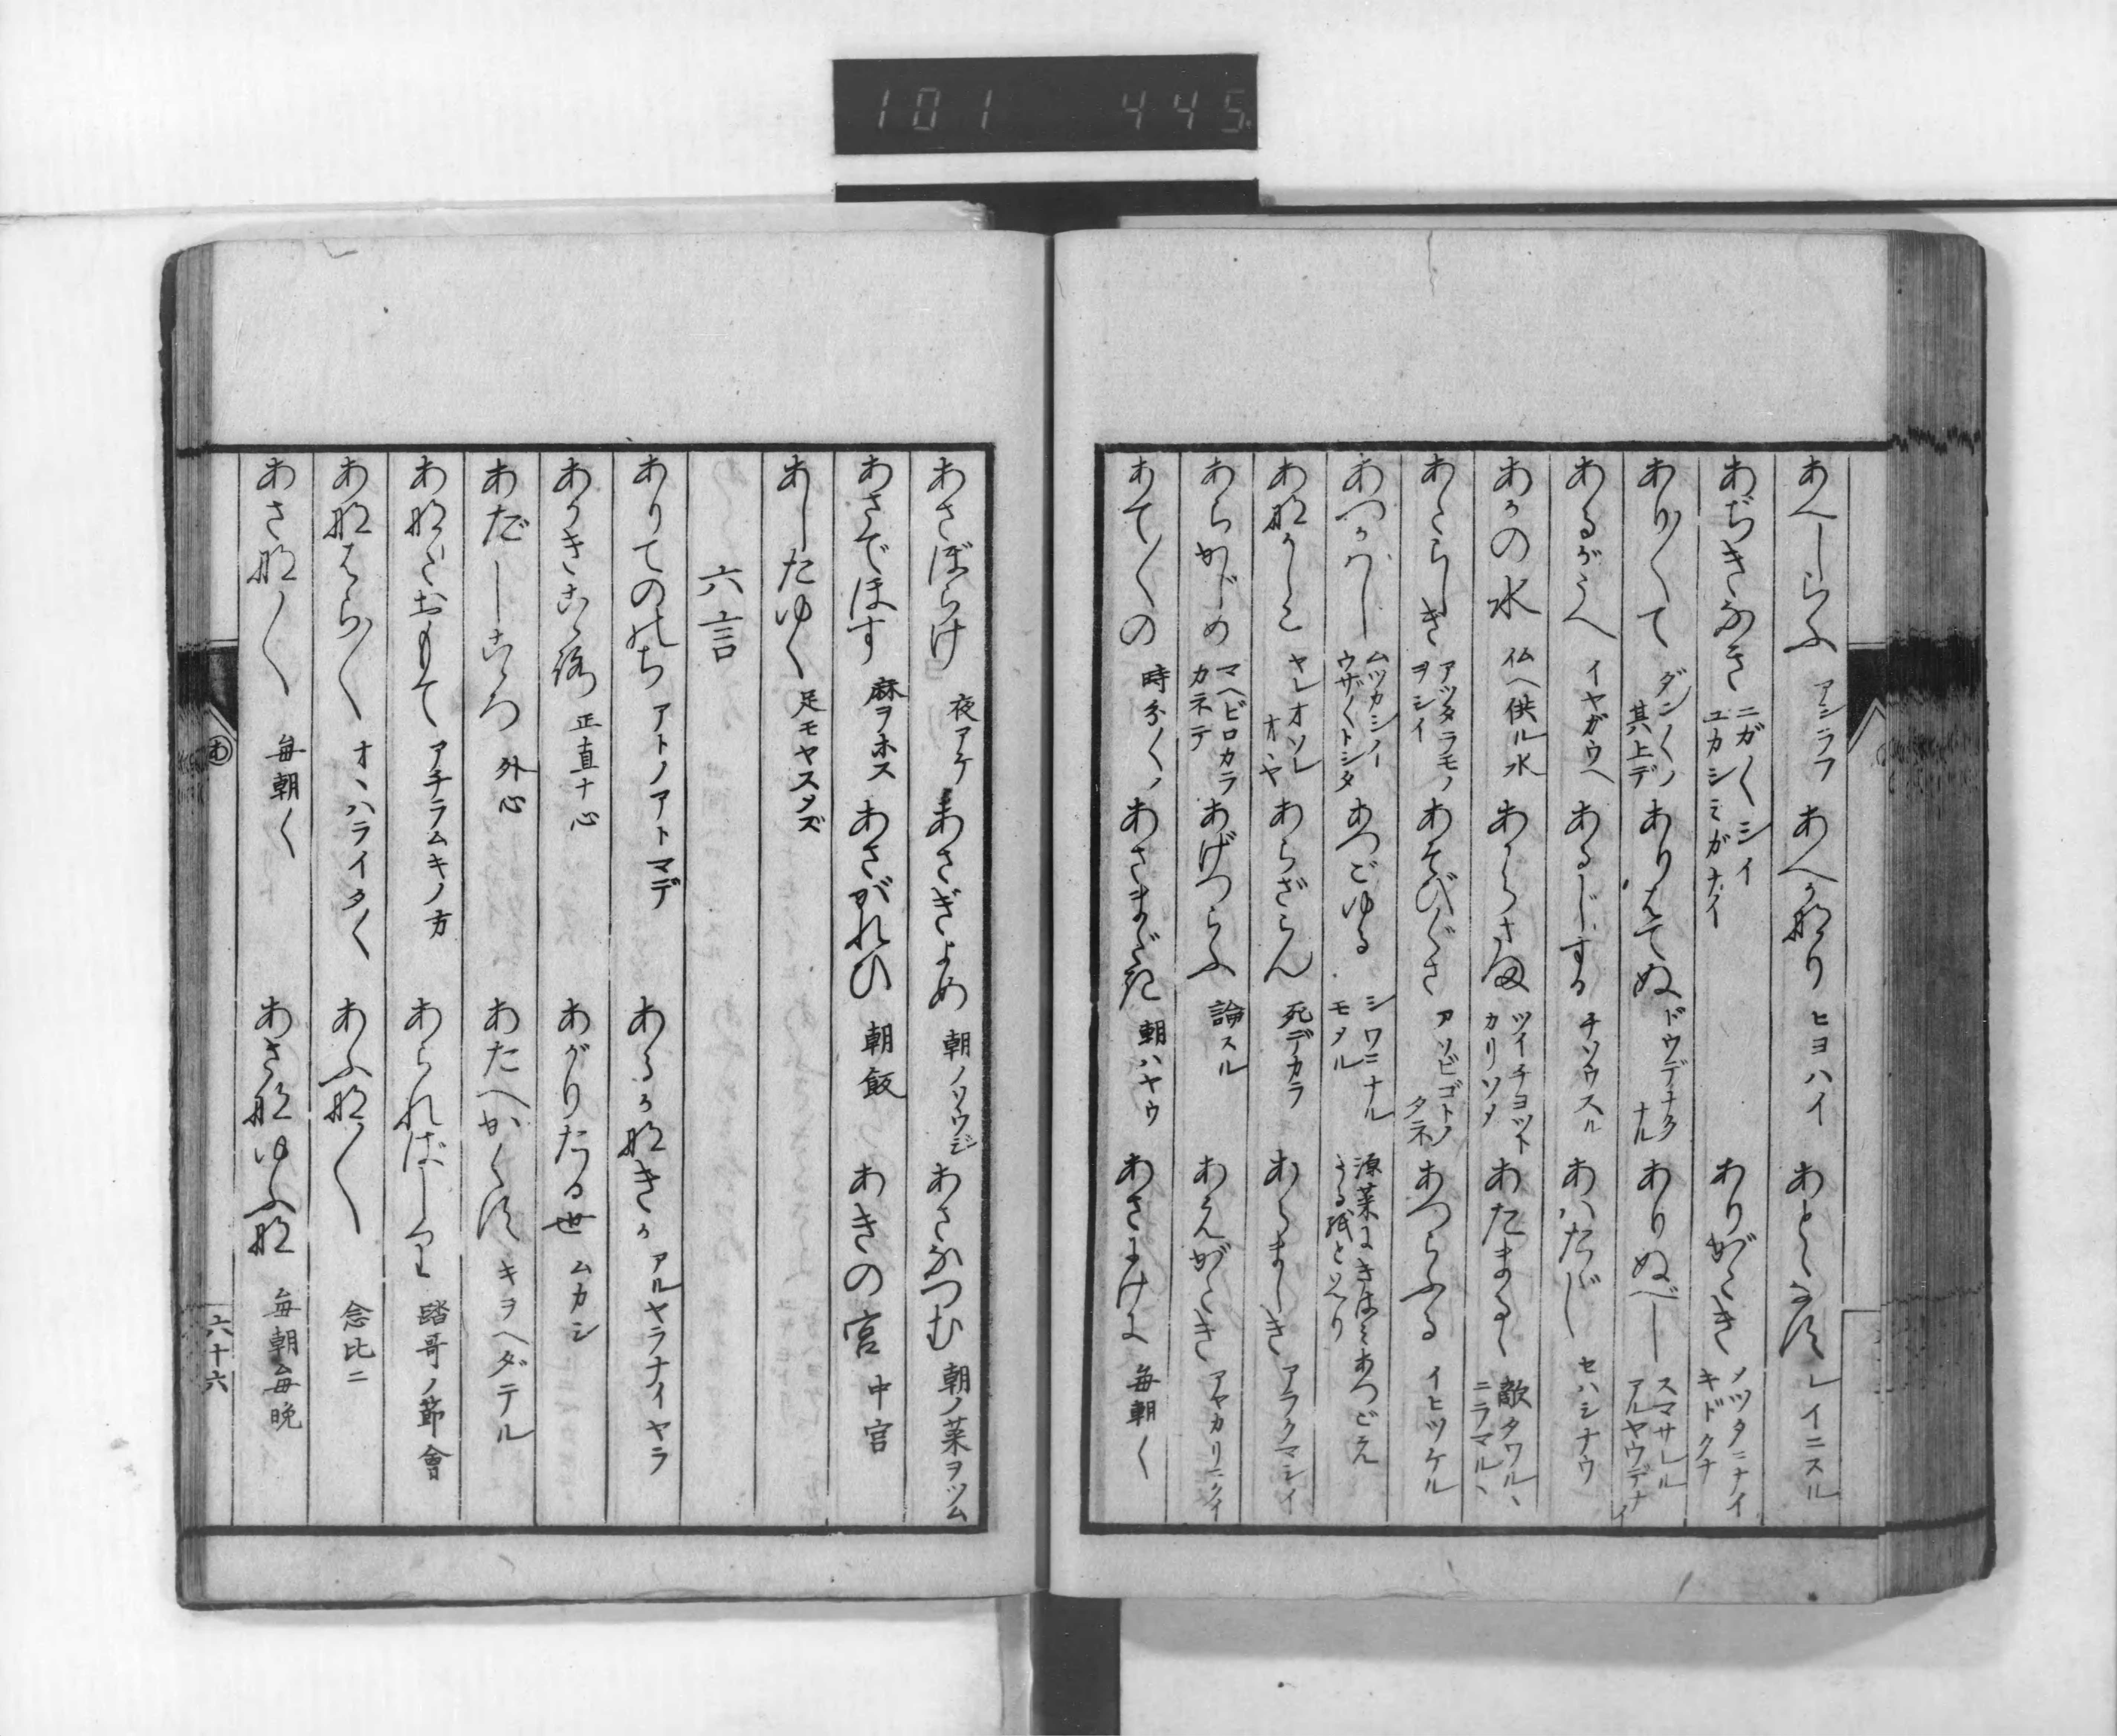 101 445
あへしらふ アシラフ あへかなり ヒヨハイ あとゝなす レイニスル
あぢきなき ニガ〱シイ ユカシミガナイ ありがたき メツタニナイ キドクナ
あり〱て ダン〱ノ 其上デ ありはてぬ ドウデナクナル ありぬべし スマサレル アルヤウデナイ
あるがうへ イヤガウヘ あるじする チソウスル あはたゞし セハシナウ
あかの水 仏ヘ供ル水 あからさま ツイチヨツト カリソメ あたまるゝ 敵タワルヽ ニラマルヽ
あたらしき アツタラモノ ヲシイ あそびぐさ アソビゴトノタネ あつらふる イヒツケル
あつかはし ムツカシノ ウザ〱トシタ あつごゆる シワニナル モタル
あなかしこ ヤレオソレ オヽヤ あらざらん 死デカラ あらましき アラクマシイ
あらかじめ マヘビロカラ カネテ あげつらふ 論スル あえがたき アヤカリニクイ
あて〱の 時分〱ノ あさまだき 朝ハヤウ あさにけに 毎朝〱
あさぼらけ 夜アケ あさぎよめ 朝ノソウジ あさなつむ 朝ノ菜ヲツム
あさでほす 麻ヲホス あさがれひ 朝飯 あきの宮 中宮
あしたゆく 足モヤスメズ
六言
ありてののち アトノアトマデ あるかなきか アルヤラナイヤラ
あかきこゝろ 正直ナ心 あがりたる世 ムカシ
あだしこゝろ 外心 あたへかくす キヲヘダテル
あなたおもて アチラムキノ方 あらればしり 踏哥ノ節會
あなはら〱 オヽハライタ〱 あふな〱 念比ニ
あさな〱 毎朝〱 あさなゆふな 毎朝毎晩
あ
六十六